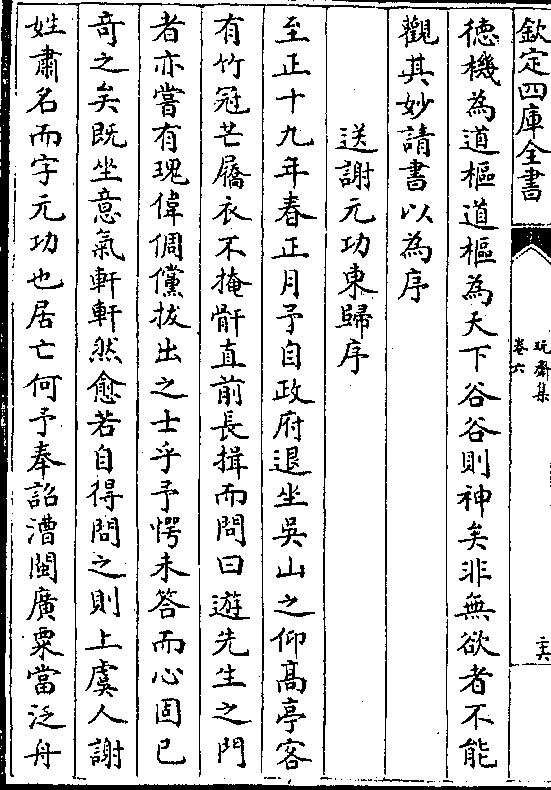 欽定四庫全書
玩齋集
卷六
德機為道樞道樞為天下谷谷則神矣非無欲者不能
觀其妙請書以為序
送謝元功東歸序
至正十九年春正月予自政府退坐吳山之仰髙亭客
有竹冠芒屩衣不掩骭直前長揖而問曰遊先生之門
者亦嘗有瑰偉倜儻拔出之士乎予愕未答而心固已
竒之矣既坐意氣軒軒然愈若自得問之則上虞人謝
姓肅名而字元功也居亡何予奉詔漕閩廣粟當泛舟